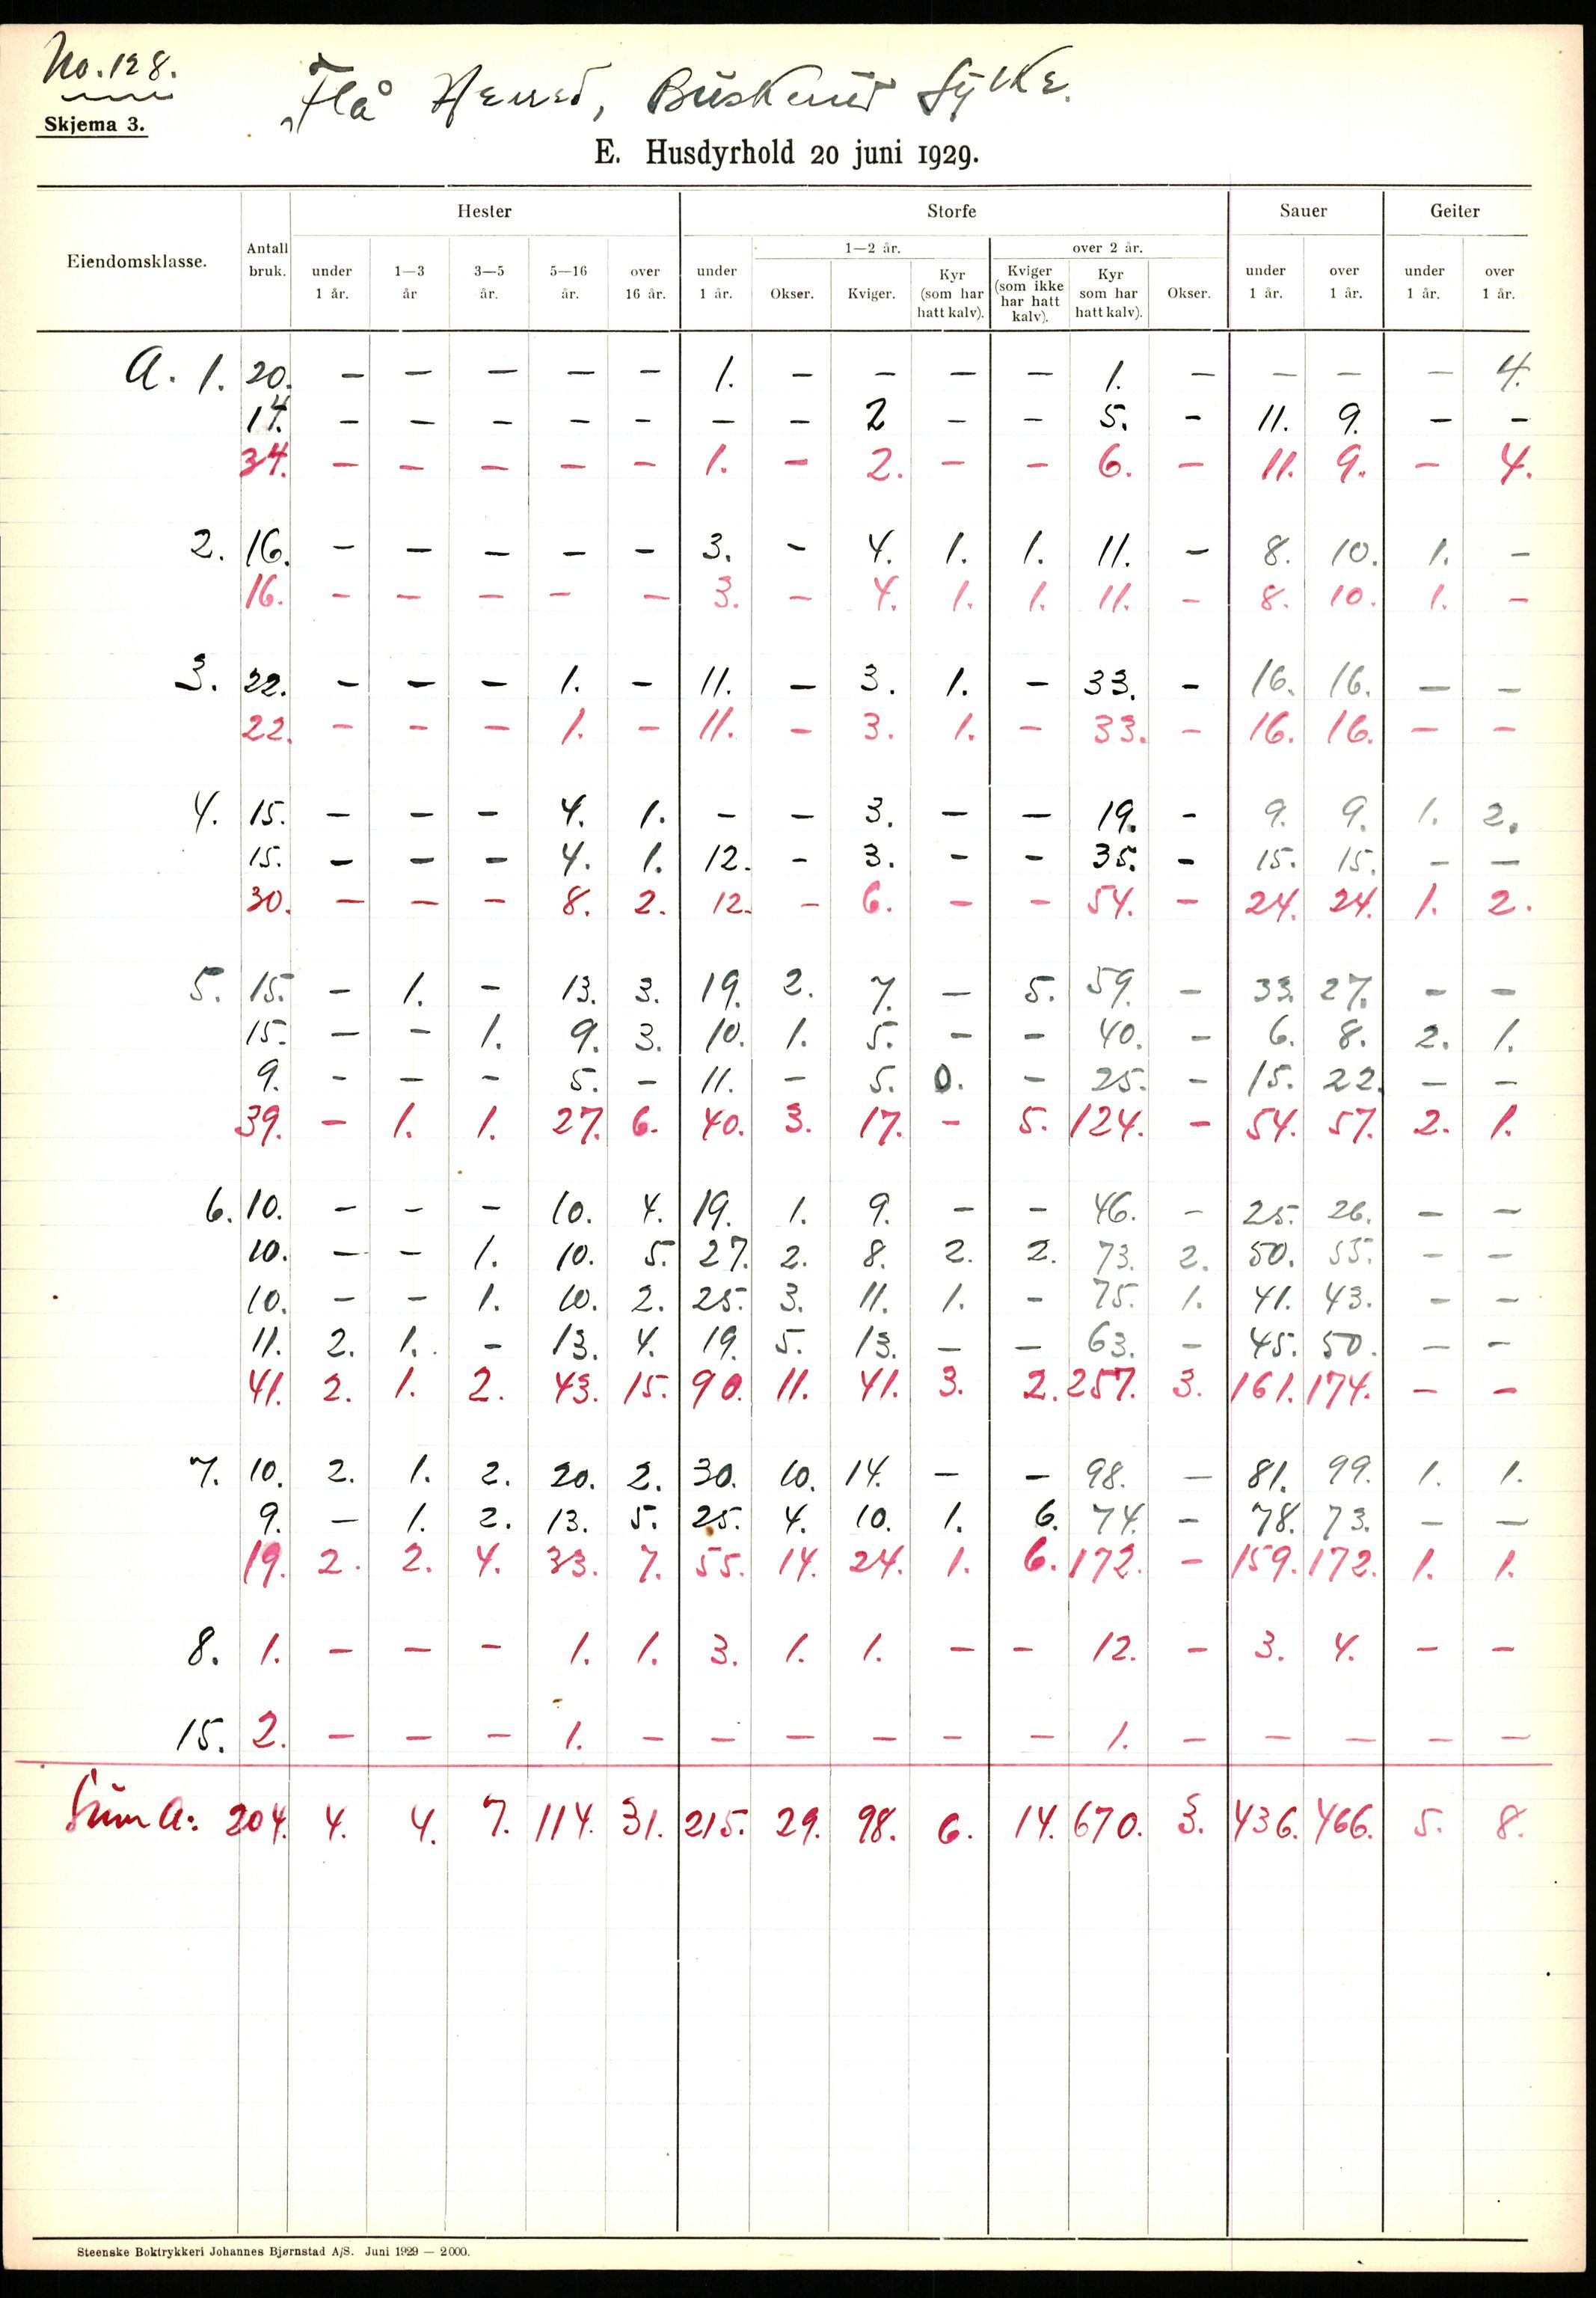 No. 128.
Flå Herred, Buskerud fylke.
Skjema 3.
E. Husdyrhold 20 juni 1929.
Hester Storfe Sauer Geiter
Eiendomsklasse. Antall bruk. under 1 år. 1—3 år 3—5 år. 5—16 år. over 16 år. under 1 år. 1—2 år. Okser. Kviger. Kyr (som har hatt kalv). over 2 år. Kviger (som ikke har hatt kalv). Kyr som har hatt kalv). Okser. under 1 år. over 1 år. under 1 år. over 1 år.
A. 1. 20. — — — — — 1. — — — — 1. — — — — 4.
14. — — — — — — — 2 — — 5. — 11. 9. — —
34. — — — — — 1. — 2. — — 6. — 11. 9. — 4.
2. 16. — — — — — 3. — 4. 1. 1. 11. — 8. 10. 1. —
16. — — — — — 3. — 4. 1. 1. 11. — 8. 10. 1. —
3. 22. — — — 1. — 11. — 3. 1. — 33. — 16. 16. — —
22. — — — 1. — 11. — 3. 1. — 33. — 16. 16. — —
4. 15. — — — 4. 1. — — 3. — — 19. — 9. 9. 1. 2.
15. — — — 4. 1. 12. — 3. — — 35. — 15. 15. — —
30. — — — 8. 2. 12. — 6. — — 54. — 24. 24. 1. 2.
5. 15. — 1. — 13. 3. 19. 2. 7. — 5. 59. — 33. 27. — —
15. — — 1. 9. 3. 10. 1. 5. — — 40. — 6. 8. 2. 1.
9. — — — 5. — 11. — 5. 0. — 25. — 15. 22. — —
39. — 1. 1. 27. 6. 40. 3. 17. — 5. 124. — 54. 57. 2. 1.
6. 10. — — — 10. 4. 19. 1. 9. — — 46. — 25. 26. — —
10. — — 1. 10. 5. 27. 2. 8. 2. 2. 73. 2. 50. 55. — —
10. — — 1. 10. 2. 25. 3. 11. 1. — 75. 1. 41. 43. — —
11. 2. 1. — 13. 4. 19. 5. 13. — — 63. — 45. 50. — —
41. 2. 1. 2. 43. 15. 90. 11. 41. 3. 2. 257. 3. 161. 174. — —
7. 10. 2. 1. 2. 20. 2. 30. 10. 14. — — 98. — 81. 99. 1. 1.
9. — 1. 2. 13. 5. 25. 4. 10. 1. 6. 74. — 78. 73. — —
19. 2. 2. 4. 33. 7. 55. 14. 24. 1. 6. 172. — 159. 172. 1. 1.
8. 1. — — — 1. 1. 3. 1. 1. — — 12. — 3. 4. — —
15. 2. — — — 1. — — — — — — 1. — — — — —
Sum A: 204. 4. 4. 7. 114. 31. 215. 29. 98. 6. 14. 670. 3. 436. 466. 5. 8.
Steenske Boktrykkeri Johannes Bjørnstad A/S. Juni 1929 — 2000.